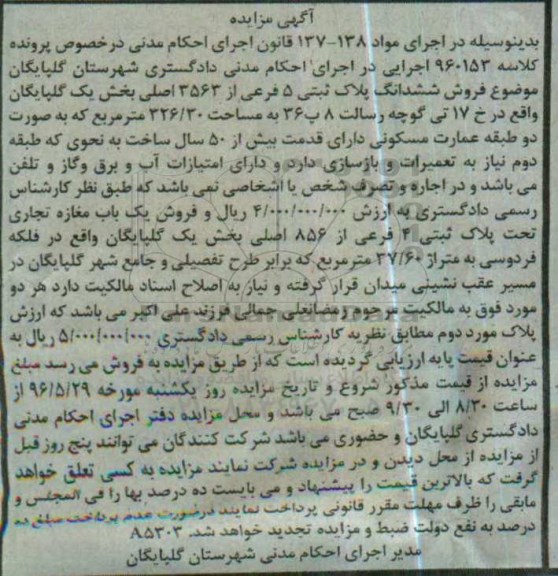 آگهی مزایده
بدینوسیله در اجرای مواد ۱۳۸-۱۳۷ قانون اجرای احکام مدنی درخصوص پرونده
کلاسه ۹۶۰۱۵۳ اجرایی در اجرای احکام مدنی دادگستری شهرستان گلپایگان
موضوع فروش ششدانگ پلاک ثبتی ۵ فرعی از ۳۵۶۳ اصلی بخش یک گلپایگان
واقع در خ ۱۷ تی گوچه رسالت ۸ پ۳۶ به مساحت ۳۲۶/۳۰ مترمربع که به صورت
دو طبقه عمارت مسکونی دارای قدمت بیش از ۵۰ سال ساخت به نحوی که طبقه
دوم نیاز به تعمیرات و بازسازی دارد و دارای امتیازات آب و برق وگاز و تلفن
می باشد و در اجاره و تصرف شخص یا اشخاصی نمی باشد که طبق نظر کارشناس
رسمی دادگستری به ارزش ۴/۰۰۰/۰۰۰/۰۰۰ ریال و فروش یک باب مغازه تجاری
تحت پلاک ثبتی ۴ فرعی از ۸۵۶ اصلی بخش یک گلپایگان واقع در فلکه
فردوسی به متراژ ۳۷/۶۰ مترمربع که برابر طرح تفصیلی و جامع شهر گلپایگان در
مسیر عقب نشینی میدان قرار گرفته و نیاز به اصلاح اسناد مالکیت دارد هر دو
مورد فوق به مالکیت مرحوم رمضانعلی جمالی فرزند علی اکبر می باشد که ارزش
پلاک مورد دوم مطابق نظریه کارشناس رسمی دادگستری ۵/۰۰۰/۰۰۰/۰۰۰ ریال به
عنوان قیمت پایه ارزیابی گردیده است که از طریق مزایده به فروش می رسد مبلغ
مزایده از قیمت مذکور شروع و تاریخ مزایده روز یکشنبه مورخه ۹۶/۵/۲۹ از
ساعت ۸/۳۰ الی ۹/۳۰ صبح می باشد و محل مزایده دفتر اجرای احکام مدنی
دادگستری گلپایگان و حضوری می باشد شرکت کنندگان می توانند پنج روز قبل
از مزایده از محل دیدن و در مزایده شرکت نمایند مزایده به کسی تعلق خواهد
گرفت که بالاترین قیمت را پیشنهاد و می بایست ده درصد بها را فی المجلس و
مابقی را ظرف مهلت مقرر قانونی پرداخت نمایند درصورت عدم پرداخت مبلغ ده
درصد به نفع دولت ضبط و مزایده تجدید خواهد شد. A۵۳۰۳
مدیر اجرای احکام مدنی شهرستان گلپایگان